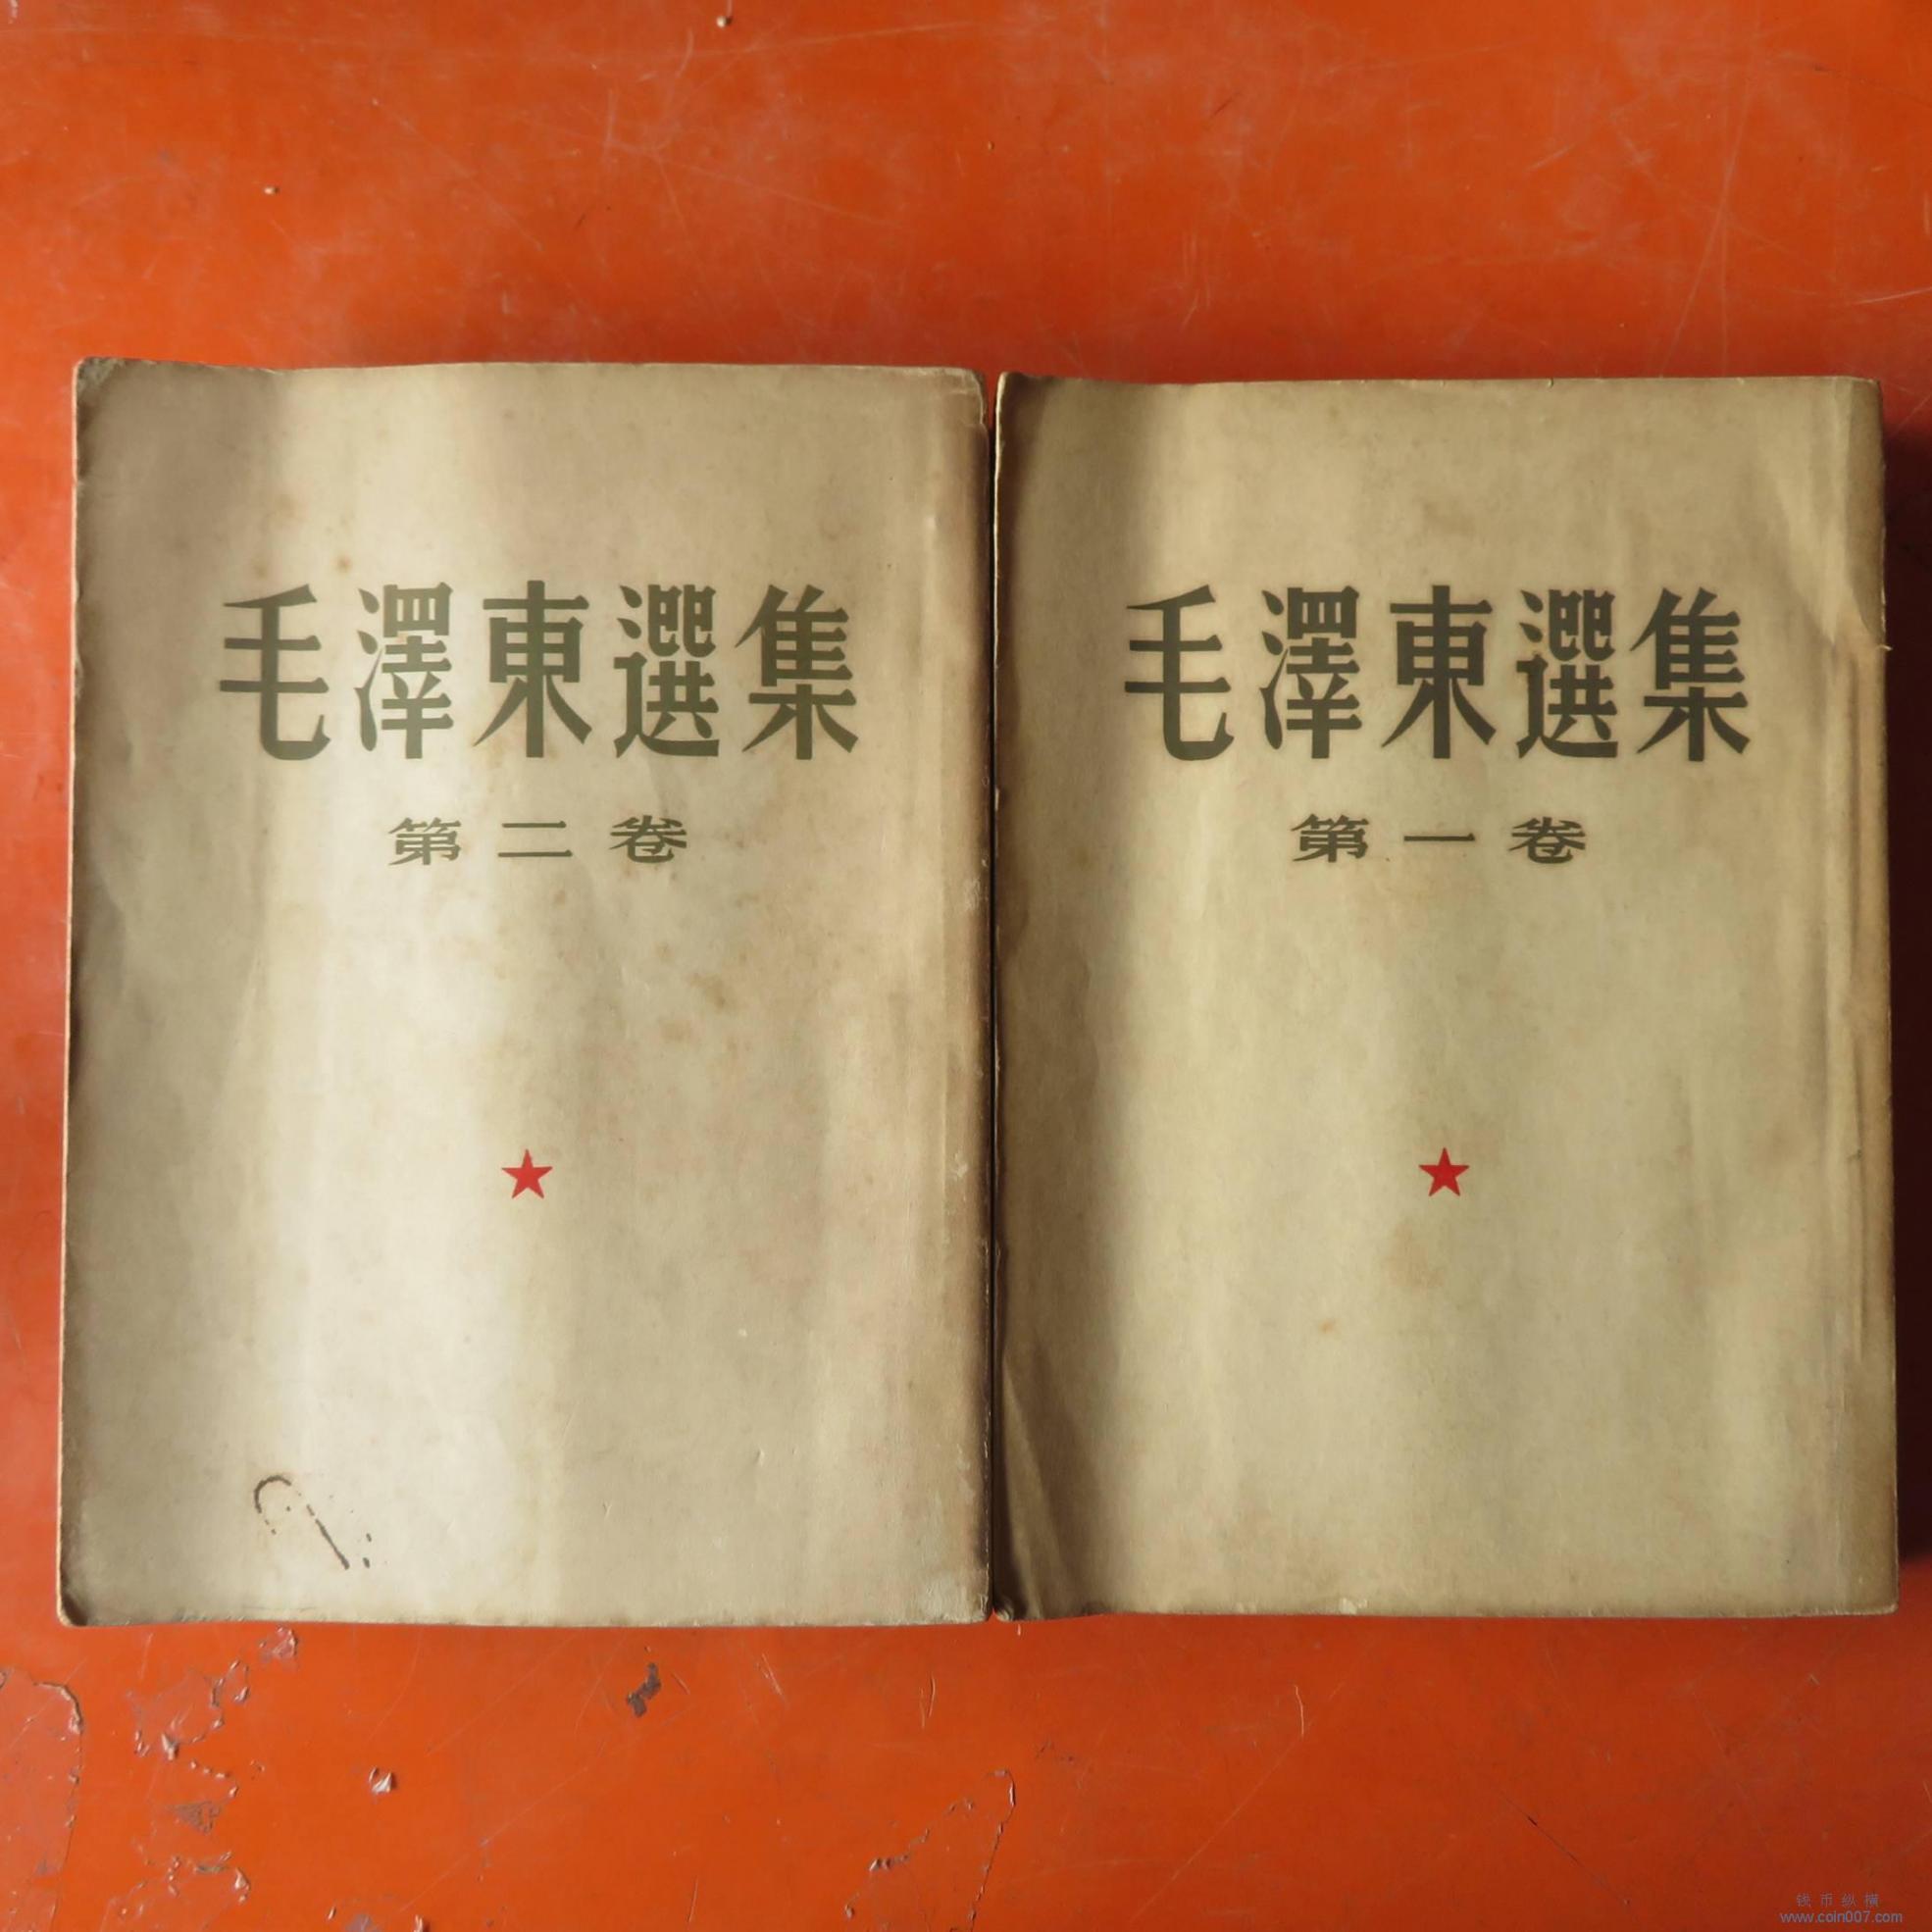 毛澤東選集
第二卷
毛澤東選集
第一卷
钱币纵横
www.coin007.com